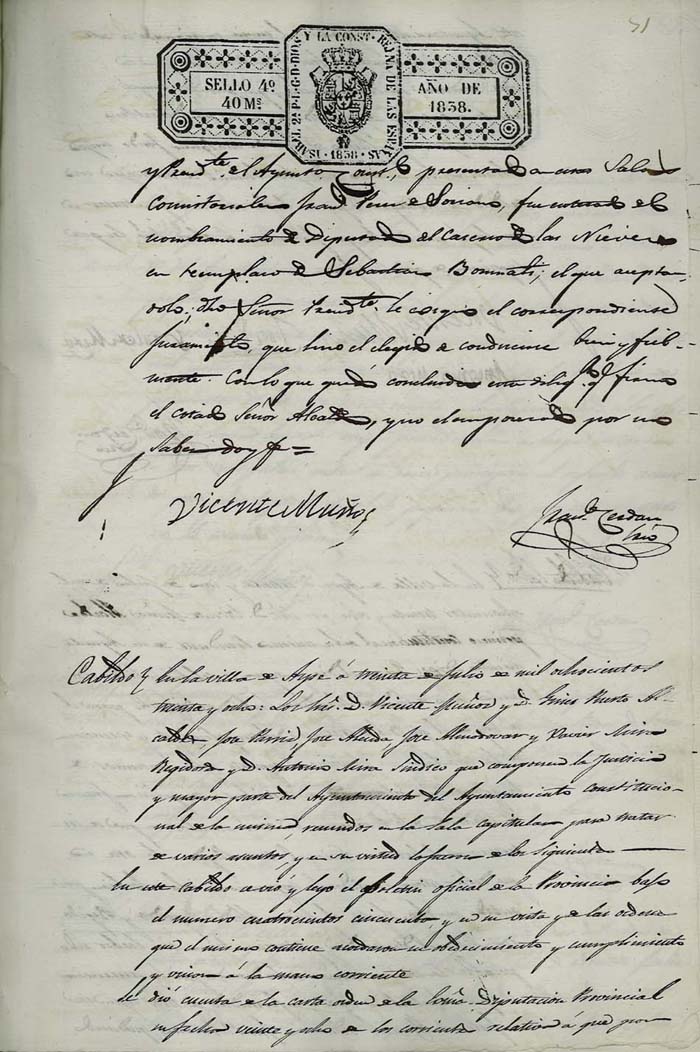 51
SELLO 4º
40 Mˢ
ISABEL 2ª P.L.G.D.DIOS Y LA CONST. REYNA DE LAS ESPAÑAS
1838
AÑO DE
1838.
y Presidᵗᵉ el Ayuntᵒ Constˡ, presentado a esas Salas
Comitoriales Franᶜᵒ Perez de Soriano, fue enterado el
nombramiento de Diputado el Caserio de las Nieves
en remplazo de Sebastian Bonmati; el que acepta
dolo; dho Señor Presidᵗᵉ le exigio el correspondiente
juramento, que hizo el elegido de conducirse bien y fiel
mente. Con lo que quedó concluida esta diligᵃ q firma
el citado Señor Alcalde, y no el por no
saber doy fe =
Vicente Muños
Franᶜᵒ Cerdan
Srio
Cabildo En la villa de Aspe á treinta de Julio de mil ochocientos
treinta y ocho: Los Srˢ. D. Vicente Muñoz y D. Gines Puerto Al-
caldes, José José Alcida, José Almodovar y Xavier Mira
Regidores y D. Antonio Mira Sindico que componen la Justicia
y mayor parte del Ayuntamiento del Ayuntamiento constitucio-
nal de la misma, reunidos en la Sala capitular para tratar
de varios asuntos, y en su virtud lo fueron de los siguientes
En este Cabildo se vió y leyó el Boletin oficial de la Provincia bajo
el numero cuatrocientos cincuenta, y en su vista y de las ordenes
que el mismo contiene acordaron su obedecimiento y cumplimiento
y union á la mano corriente
Se dió cuenta de la carta orden de la Diputacion Provincial
su fecha veinte y ocho de los corrientes relativa á que por